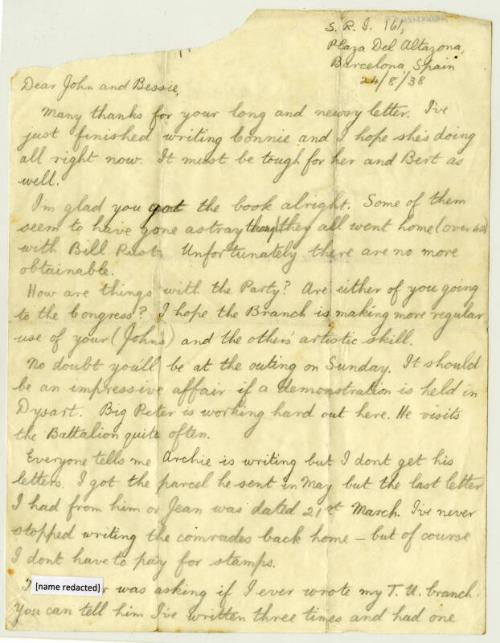 S. R. I. 161,
Plaza Del Altazona,
Barcelona, Spain
24/8/38
Dear John and Bessie,
Many thanks for your long and newsy letter. I've
just finished writing Connie and I hope she's doing
all right now. It must be tough for her and Bert as
well.
I'm glad you got the book alright. Some of them
seem to have gone astray they all went home (over
with Bill Unfortunately there are no more
obtainable.
How are things with the Party? Are either of you going
to the Congress? I hope the Branch is making more regular
use of your (John's) and the others' artistic skill.
No doubt you'll be at the outing on Sunday. It should
be an impressive affair if a demonstration is held in
Dysart. Big Peter is working hard out here. He visits
the Battalion quite often.
Everyone tells me Archie is writing but I dont get his
letters. I got the parcel he sent in May but the last letter
I had from him or Jean was dated 21st March. I've never
stopped writing the comrades back home - but of course
I dont have to pay for stamps.
[name redacted] was asking if I ever wrote my T. U. branch.
You can tell him I've written three times and had one